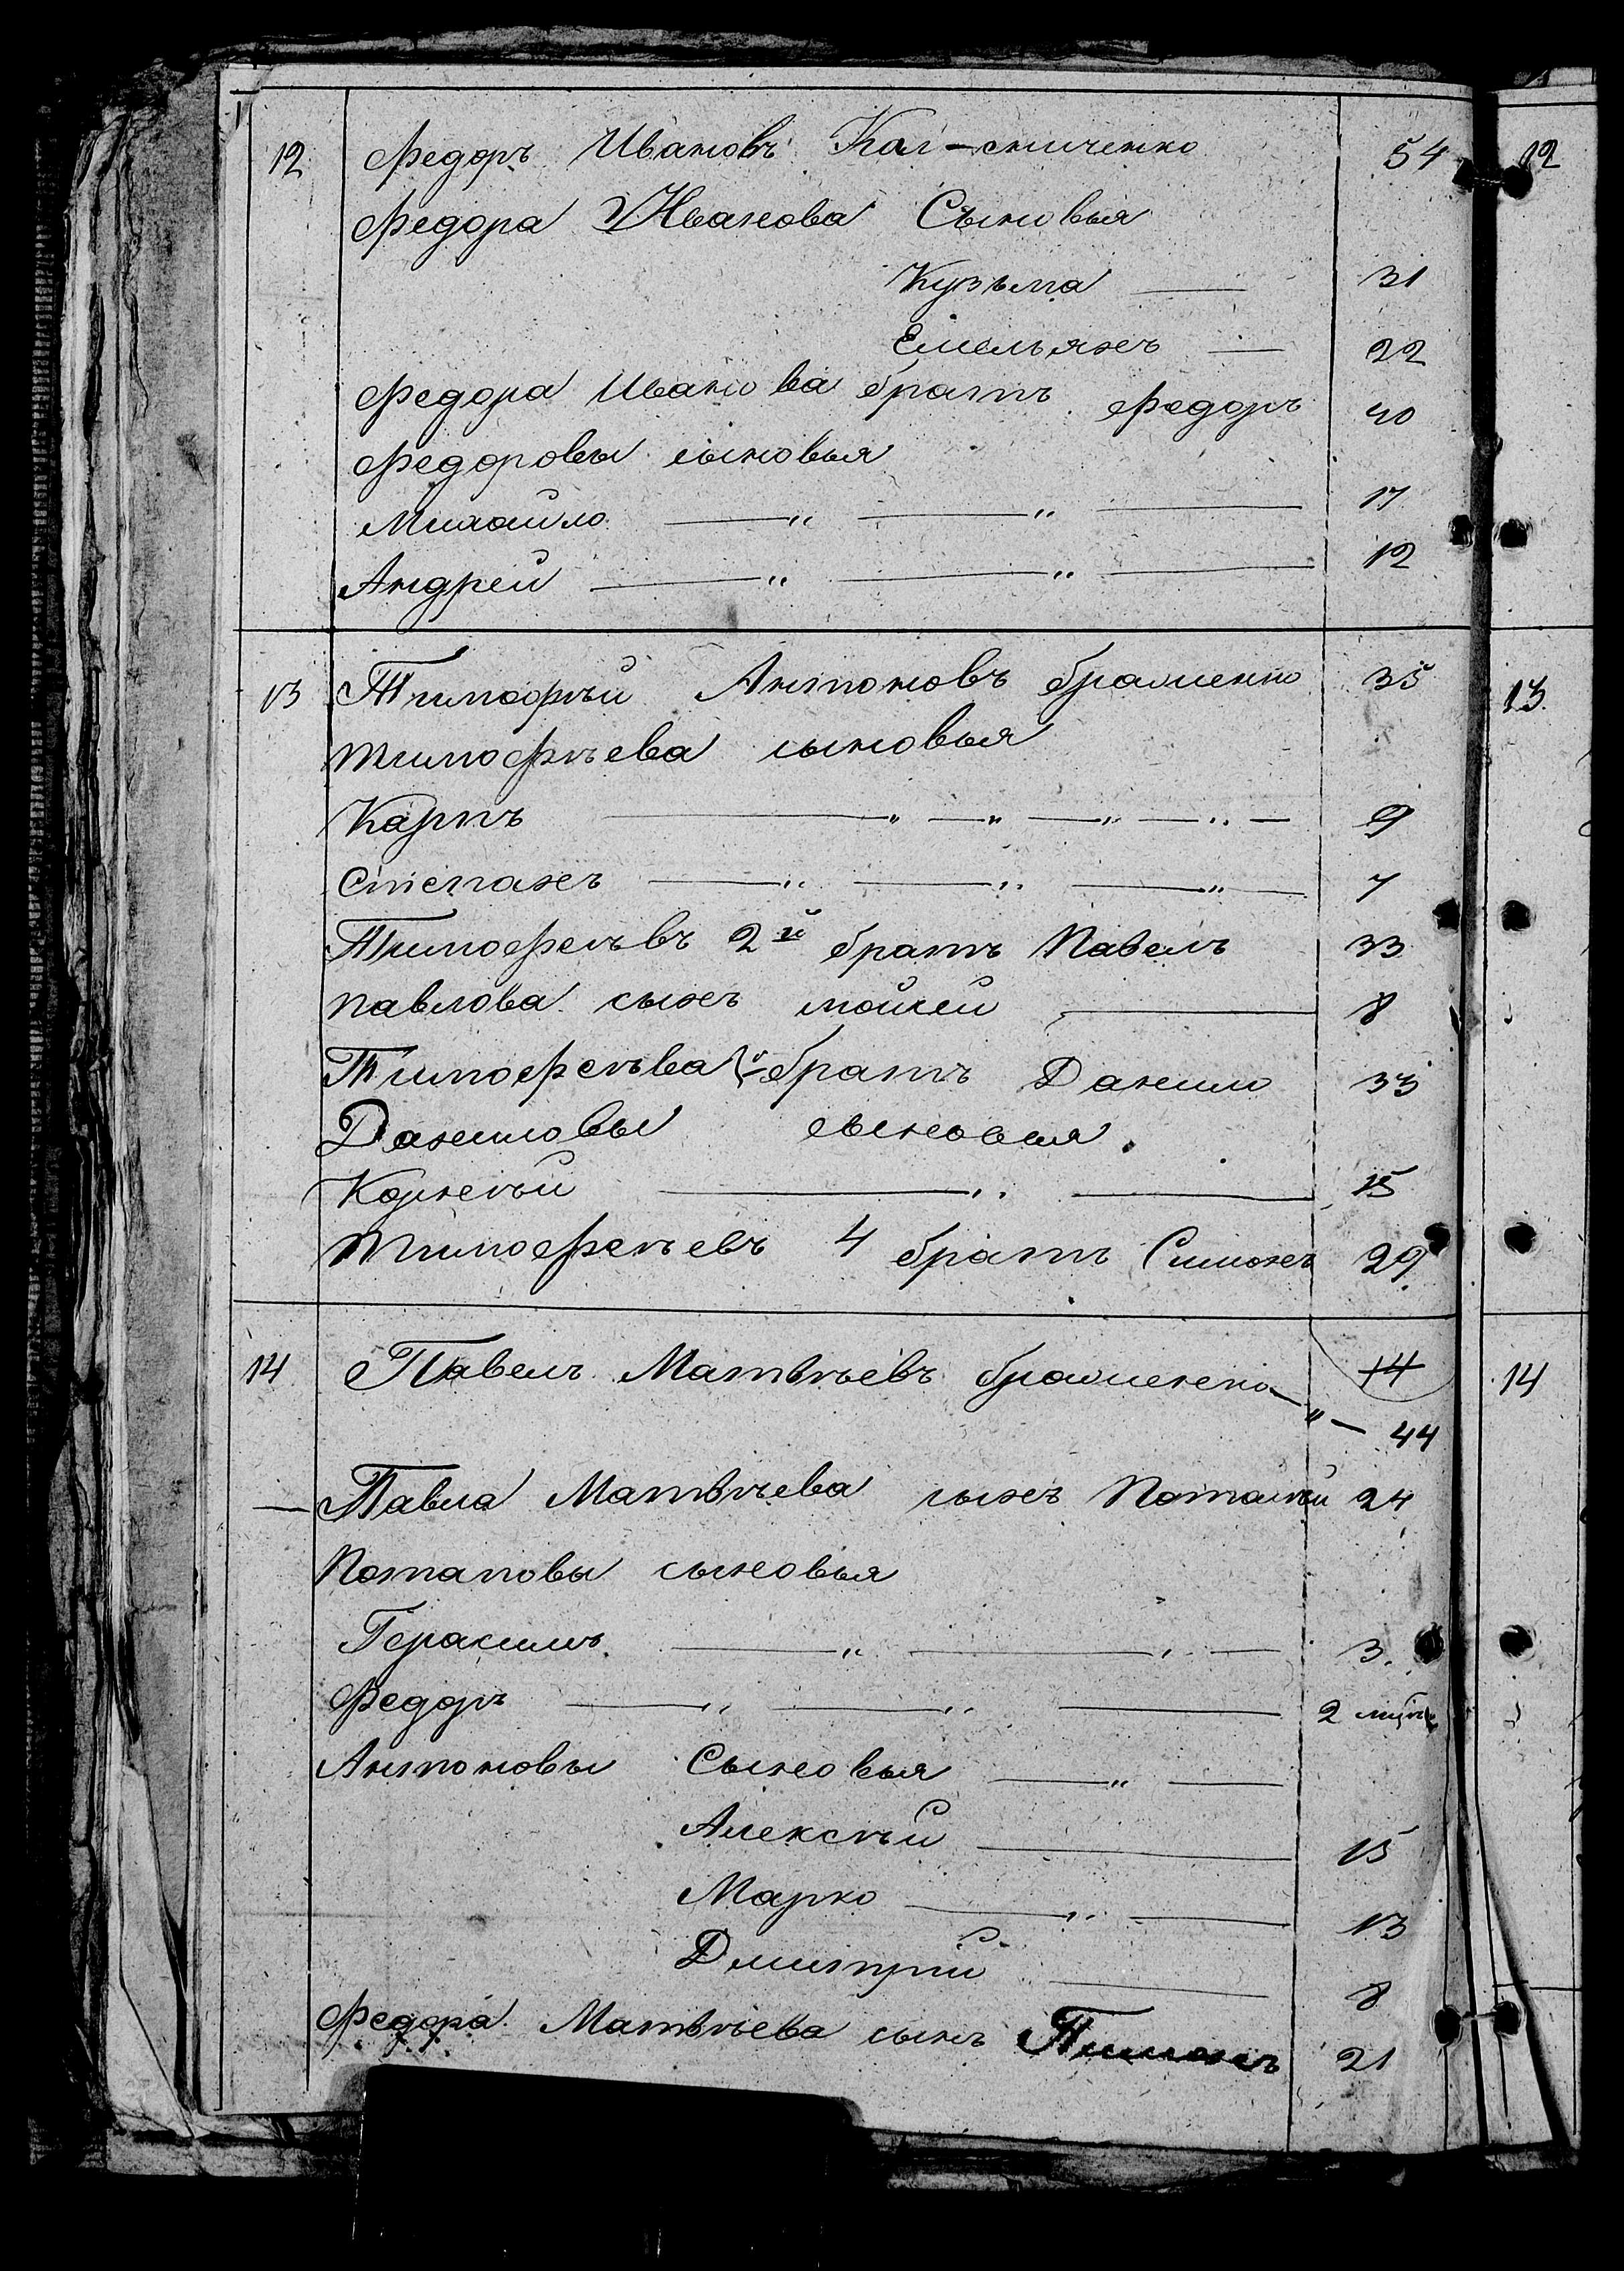 12 Федоръ Ивановъ 54 12
Федора Иванова Сыновья
Кузьма — 31
Емельянъ — 22
Федора Иванова братъ Федоръ 40
Федоровы сыновья
Михайло — „ — „ — 17
Андрей — „ — „ — 12
13 Тимофѣй Антоновъ 35 13
Тимофѣева сыновья
Карпъ — „ — „ — „ — „ — 9
Степанъ — „ — „ — „ — 7
2й братъ Павелъ 33
Павлова сынъ Мойсей — 8
братъ Данило 33
Даниловы сыновья
Корнѣй — „ — 15
4 братъ Симонъ 29
14 Павелъ Матвѣевъ 14 14
— „ — 44
— Павла Матвѣева сынъ 24
Потаповы сыновья
Герасимъ — „ — „ — 3
Федоръ — „ — „ — 2
Антоновы Сыновья — „ —
Алексѣй — 15
Марко — „ — 13
Дмитрій — 8
Федора Матвѣева сынъ 21